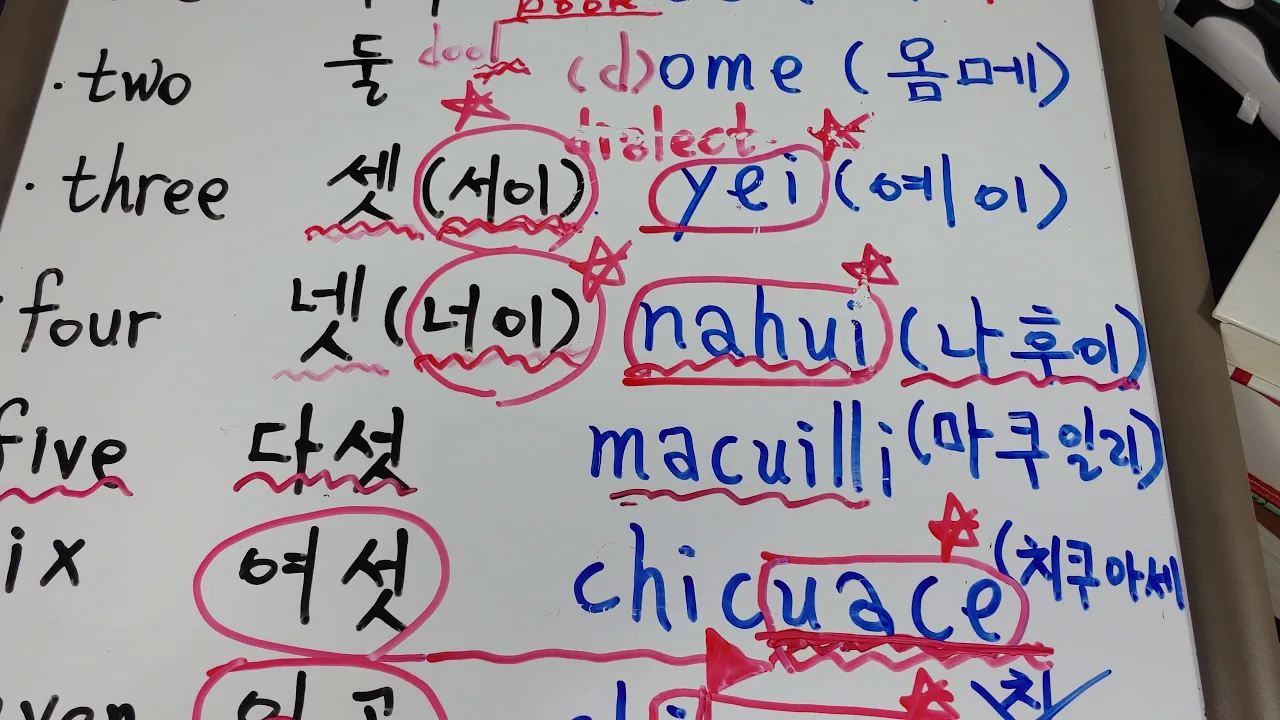 book
· two 둘 dool (d)ome (옴메)
dialect
· three 셋 (서이) yei (예이)
four 넷 (너이) nahui (나후이)
five 다섯 macuilli (마쿠일리)
ix 여섯 chicuace (치쿠아세